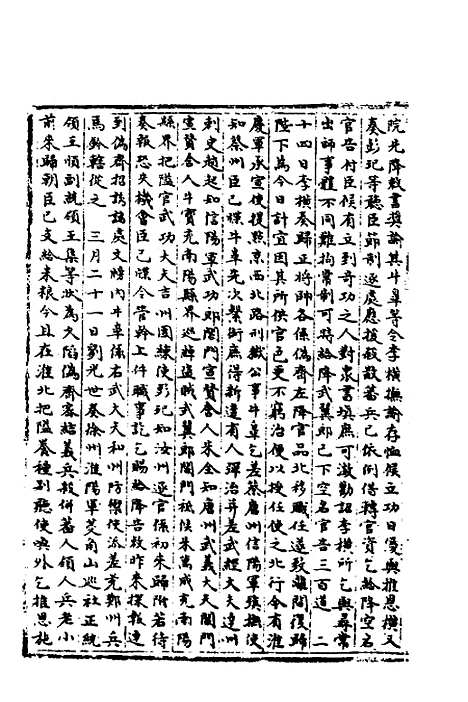 院先降敕書獎諭其牛皐等令李橫撫諭存恤俟立功日優與推恩橫又
奏彭玘等聽臣節制逐處應援殺散蕃兵已依例借轉官資乞給降空名
官告付臣候有立到奇功之人對衆書填庶可激勸詔李橫所乞與尋常
出師事體不同難拘常制可特給降武翼郎已下空名官告三百道 二
十四日李橫奏歸正將師各係僞齊左降官品北移職任遂致離間復歸
陛下爲今日計宜因其所俟官已更不窮治便以授任使之北行令有淮
慶軍承宣使提點京西北路刑獄公事牛皐乞差蔡唐州信陽軍鎮撫使
知蔡州臣已牒牛皐先次繫銜庶得新遺有人彈治并差武經大夫逹州
刺史趙起知信陽軍武功郎閤門宣贊舍人朱全知唐州武義大夫閤門
宣贊舍人牛寳充南陽縣界巡轄盜賊武翼郎閤門祗候朱萬成充南陽
縣界把隘官武功大夫吉州團練使彭玘知汝州逐官係初來歸附若待
奏報恐失機會臣已牒令管幹上件職事訖乞賜給降告敕昨來探報逹
到僞齊招誘諸處文牓内牛皐係右武大夫和州防禦使派差充鄭州兵
馬鈐轄從之 三月二十一日劉光世奏徐州淮陽軍茭角山巡社正統
領王順副統領王集等狀爲久陷僞齊密結義兵殺併蕃人領人兵老小
前來歸朝臣已支給米粮今且在淮北把隘養種别聽使喚外乞推恩施